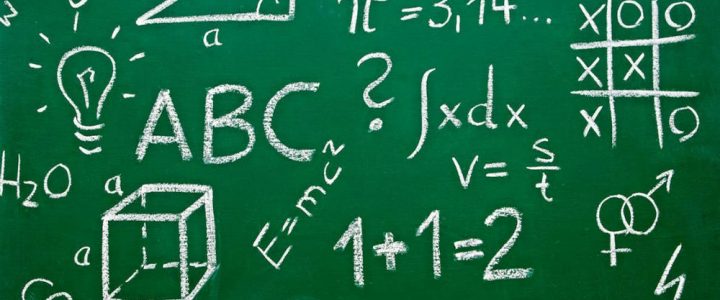 π=3,14...
a
X O O
X X
X O
ABC
?
∫xdx
v= s/t
H₂O
a
a
E=mc²
1+1=2